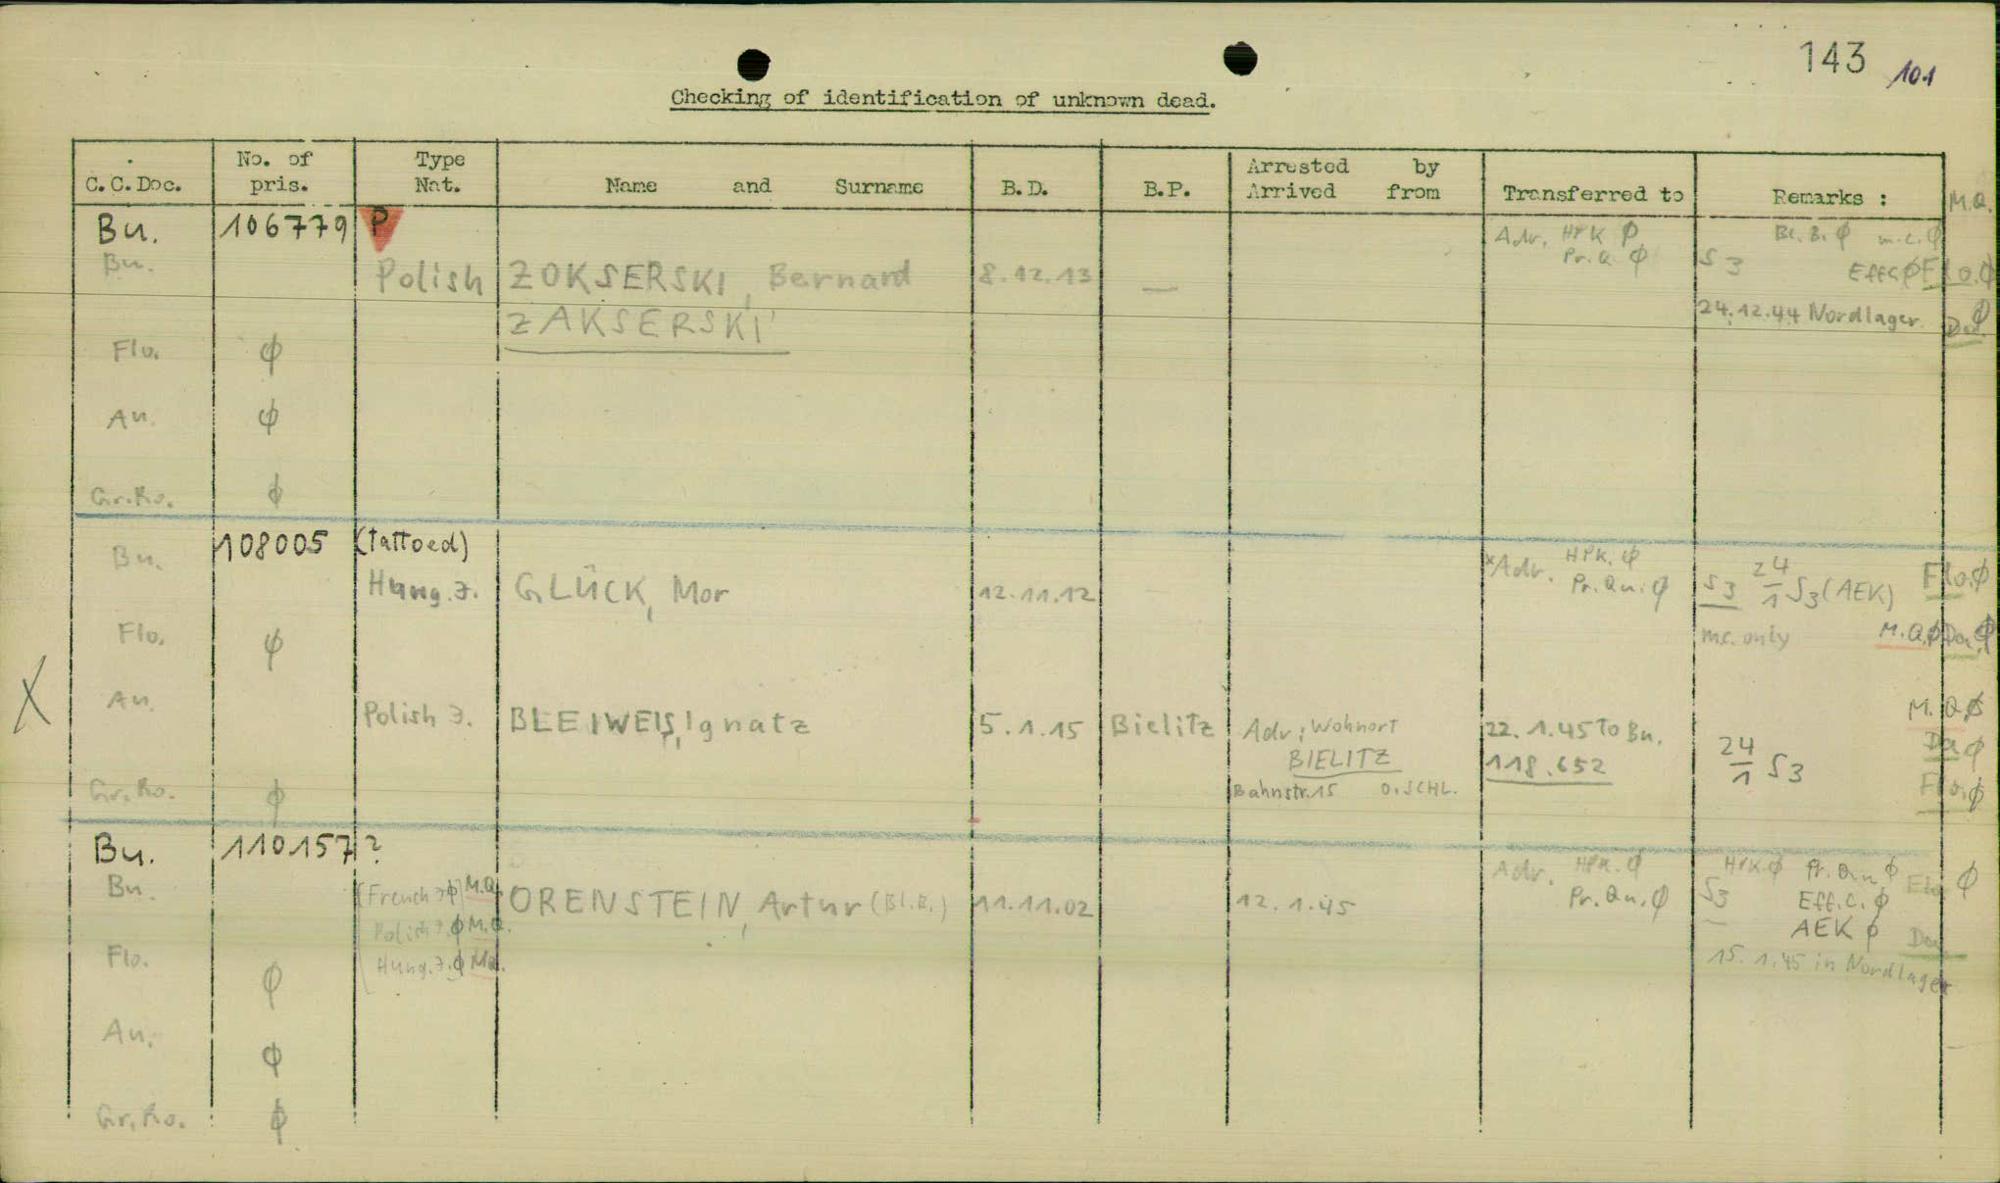 143 101
Checking of identification of unknown dead.
C.C.Doc. No. of pris. Type Nat. Name and Surname B.D. B.P. Arrested by Arrived from Transferred to Remarks : M.Q.
Bu. 106779 P Adv. HPK ϕ Bl.B. ϕ m.c. ϕ
Pr.Q ϕ
Bu. Polish ZOKSERSKI, Bernard 8.12.13 — S3 Eff.C ϕ Flo. ϕ
ZAKSERSKI 24.12.44 Nordlager Da. ϕ
Flo. ϕ
Au. ϕ
Gr.Ro. ϕ
Bu. 108005 (tattoed) xAdv. HPK. ϕ
Hung. J. GLÜCK, Mor 12.11.12 Pr.Qu. ϕ S3 24/1 S3 (AEK) Flo. ϕ
Flo. ϕ m.c. only M.Q. ϕ Da. ϕ
X
Au. Polish J. BLEIWEIS, Ignatz 5.1.15 Bielitz Adv; Wohnort 22.1.45 To Bu. M.Q ϕ
BIELITZ 118.652 24/1 S3 Da ϕ
Gr.Ro. ϕ Bahnstr. 15 O.SCHL. Flo. ϕ
Bu. 110157? Adv. HPK. ϕ HPK ϕ Pr.Qu ϕ
Bu. (French J ϕ) M.Q. ORENSTEIN, Artur (Bl.B.) 11.11.02 12.1.45 Pr.Qu. ϕ S3 Eff.C. ϕ Flo. ϕ
Polish J. ϕ M.Q. — AEK ϕ Da.
Flo. Hung. J. ϕ M.Q. 15.1.45 in Nordlager
ϕ
Au. ϕ
Gr.Ro. ϕ